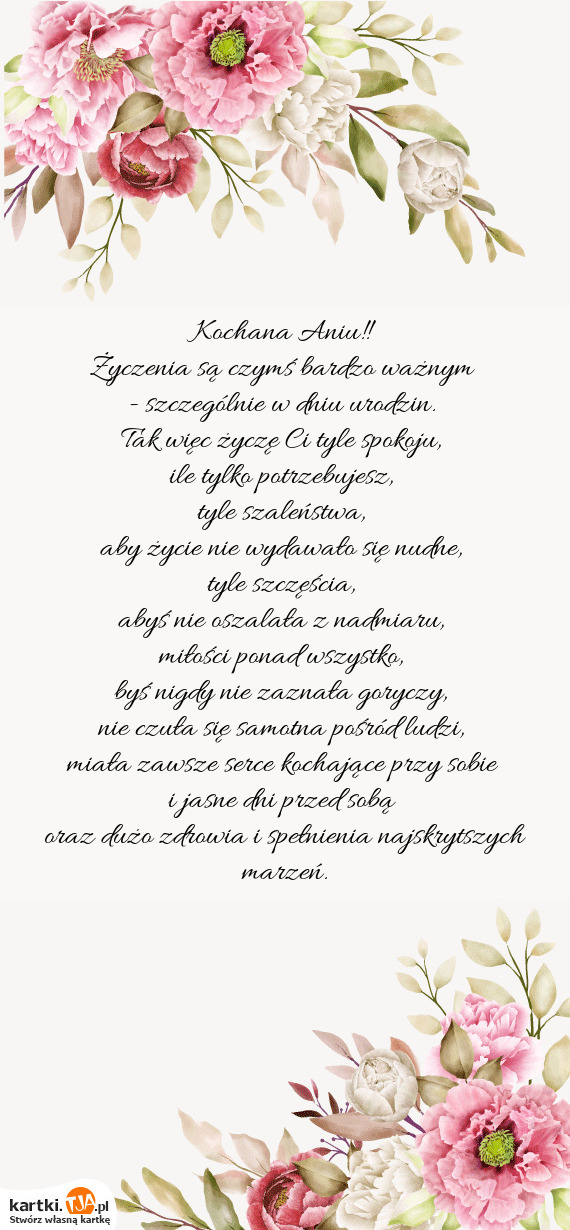 Kochana Aniu!!
Życzenia są czymś bardzo ważnym
- szczególnie w dniu urodzin.
Tak więc życzę Ci tyle spokoju,
ile tylko potrzebujesz,
tyle szaleństwa,
aby życie nie wydawało się nudne,
tyle szczęścia,
abyś nie oszalała z nadmiaru,
miłości ponad wszystko,
byś nigdy nie zaznała goryczy,
nie czuła się samotna pośród ludzi,
miała zawsze serce kochające przy sobie
i jasne dni przed sobą
oraz dużo zdrowia i spełnienia najskrytszych
marzeń.
kartki.TJA.pl
Stwórz własną kartkę